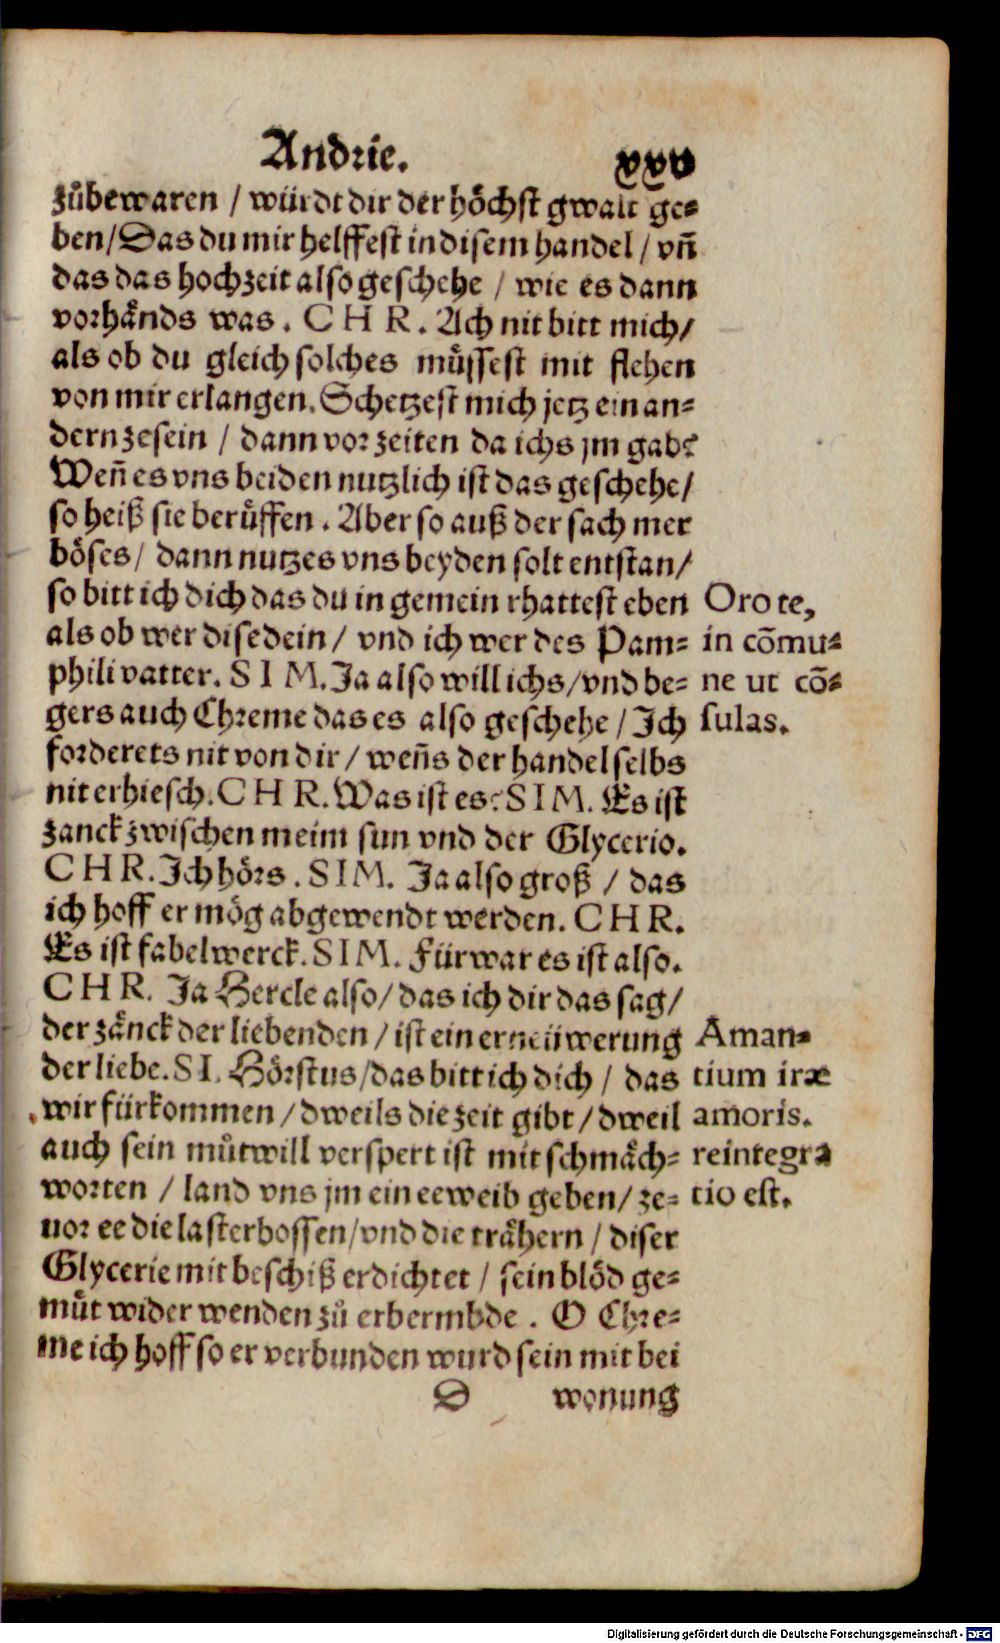 Andrie. xxv
zůbewaren / würdt dir der höchst gwalt ge⸗
ben / Das du mir helffest in disem handel / vñ
das das hochzeit also geschehe / wie es dann
vorhånds was. CHR. Ach nit bitt mich /
als ob du gleich solches müssest mit flehen
von mir erlangen. Schetzest mich jetz ein an⸗
dern ze sein / dann vor zeiten da ichs jm gab?
Weñ es vns beiden nutzlich ist das geschehe /
so heiß sie berůffen. Aber so auß der sach mer
böses / dann nutzes vns beyden solt entstan /
so bitt ich dich das du in gemein rhattest eben
als ob wer dise dein / vnd ich wer des Pam⸗
phili vatter. SIM. Ja also will ichs / vnd be⸗
gers auch Chreme das es also geschehe / Ich
forderets nit von dir / weñs der handel selbs
nit erhiesch. CHR. Was ist es? SIM. Es ist
zanck zwischen meim sun vnd der Glycerio.
CHR. Ich hörs. SIM. Ja also groß / das
ich hoff er mög abgewendt werden. CHR.
Es ist fabelwerck. SIM. Fürwar es ist also.
CHR. Ja Hercle also / das ich dir das sag /
der zånck der liebenden / ist ein erneüwerung
der liebe. SI. Hörstus / das bitt ich dich / das
wir fürkommen / dweils die zeit gibt / dweil
auch sein můtwill verspert ist mit schmåch⸗
worten / land vns jm ein eeweib geben / ze⸗
uor ee die lasterbossen / vnd die tråhern / diser
Glycerie mit beschiß erdichtet / sein blöd ge⸗
můt wider wenden zů erbermbde. O Chre⸗
me ich hoff so er verbunden wurd sein mit bei
D wonung
Oro te,
in cõmu⸗
ne ut cõ⸗
sulas.
Aman⸗
tium iræ
amoris.
reintegra
tio est.
Digitalisierung gefördert durch die Deutsche Forschungsgemeinschaft - DFG